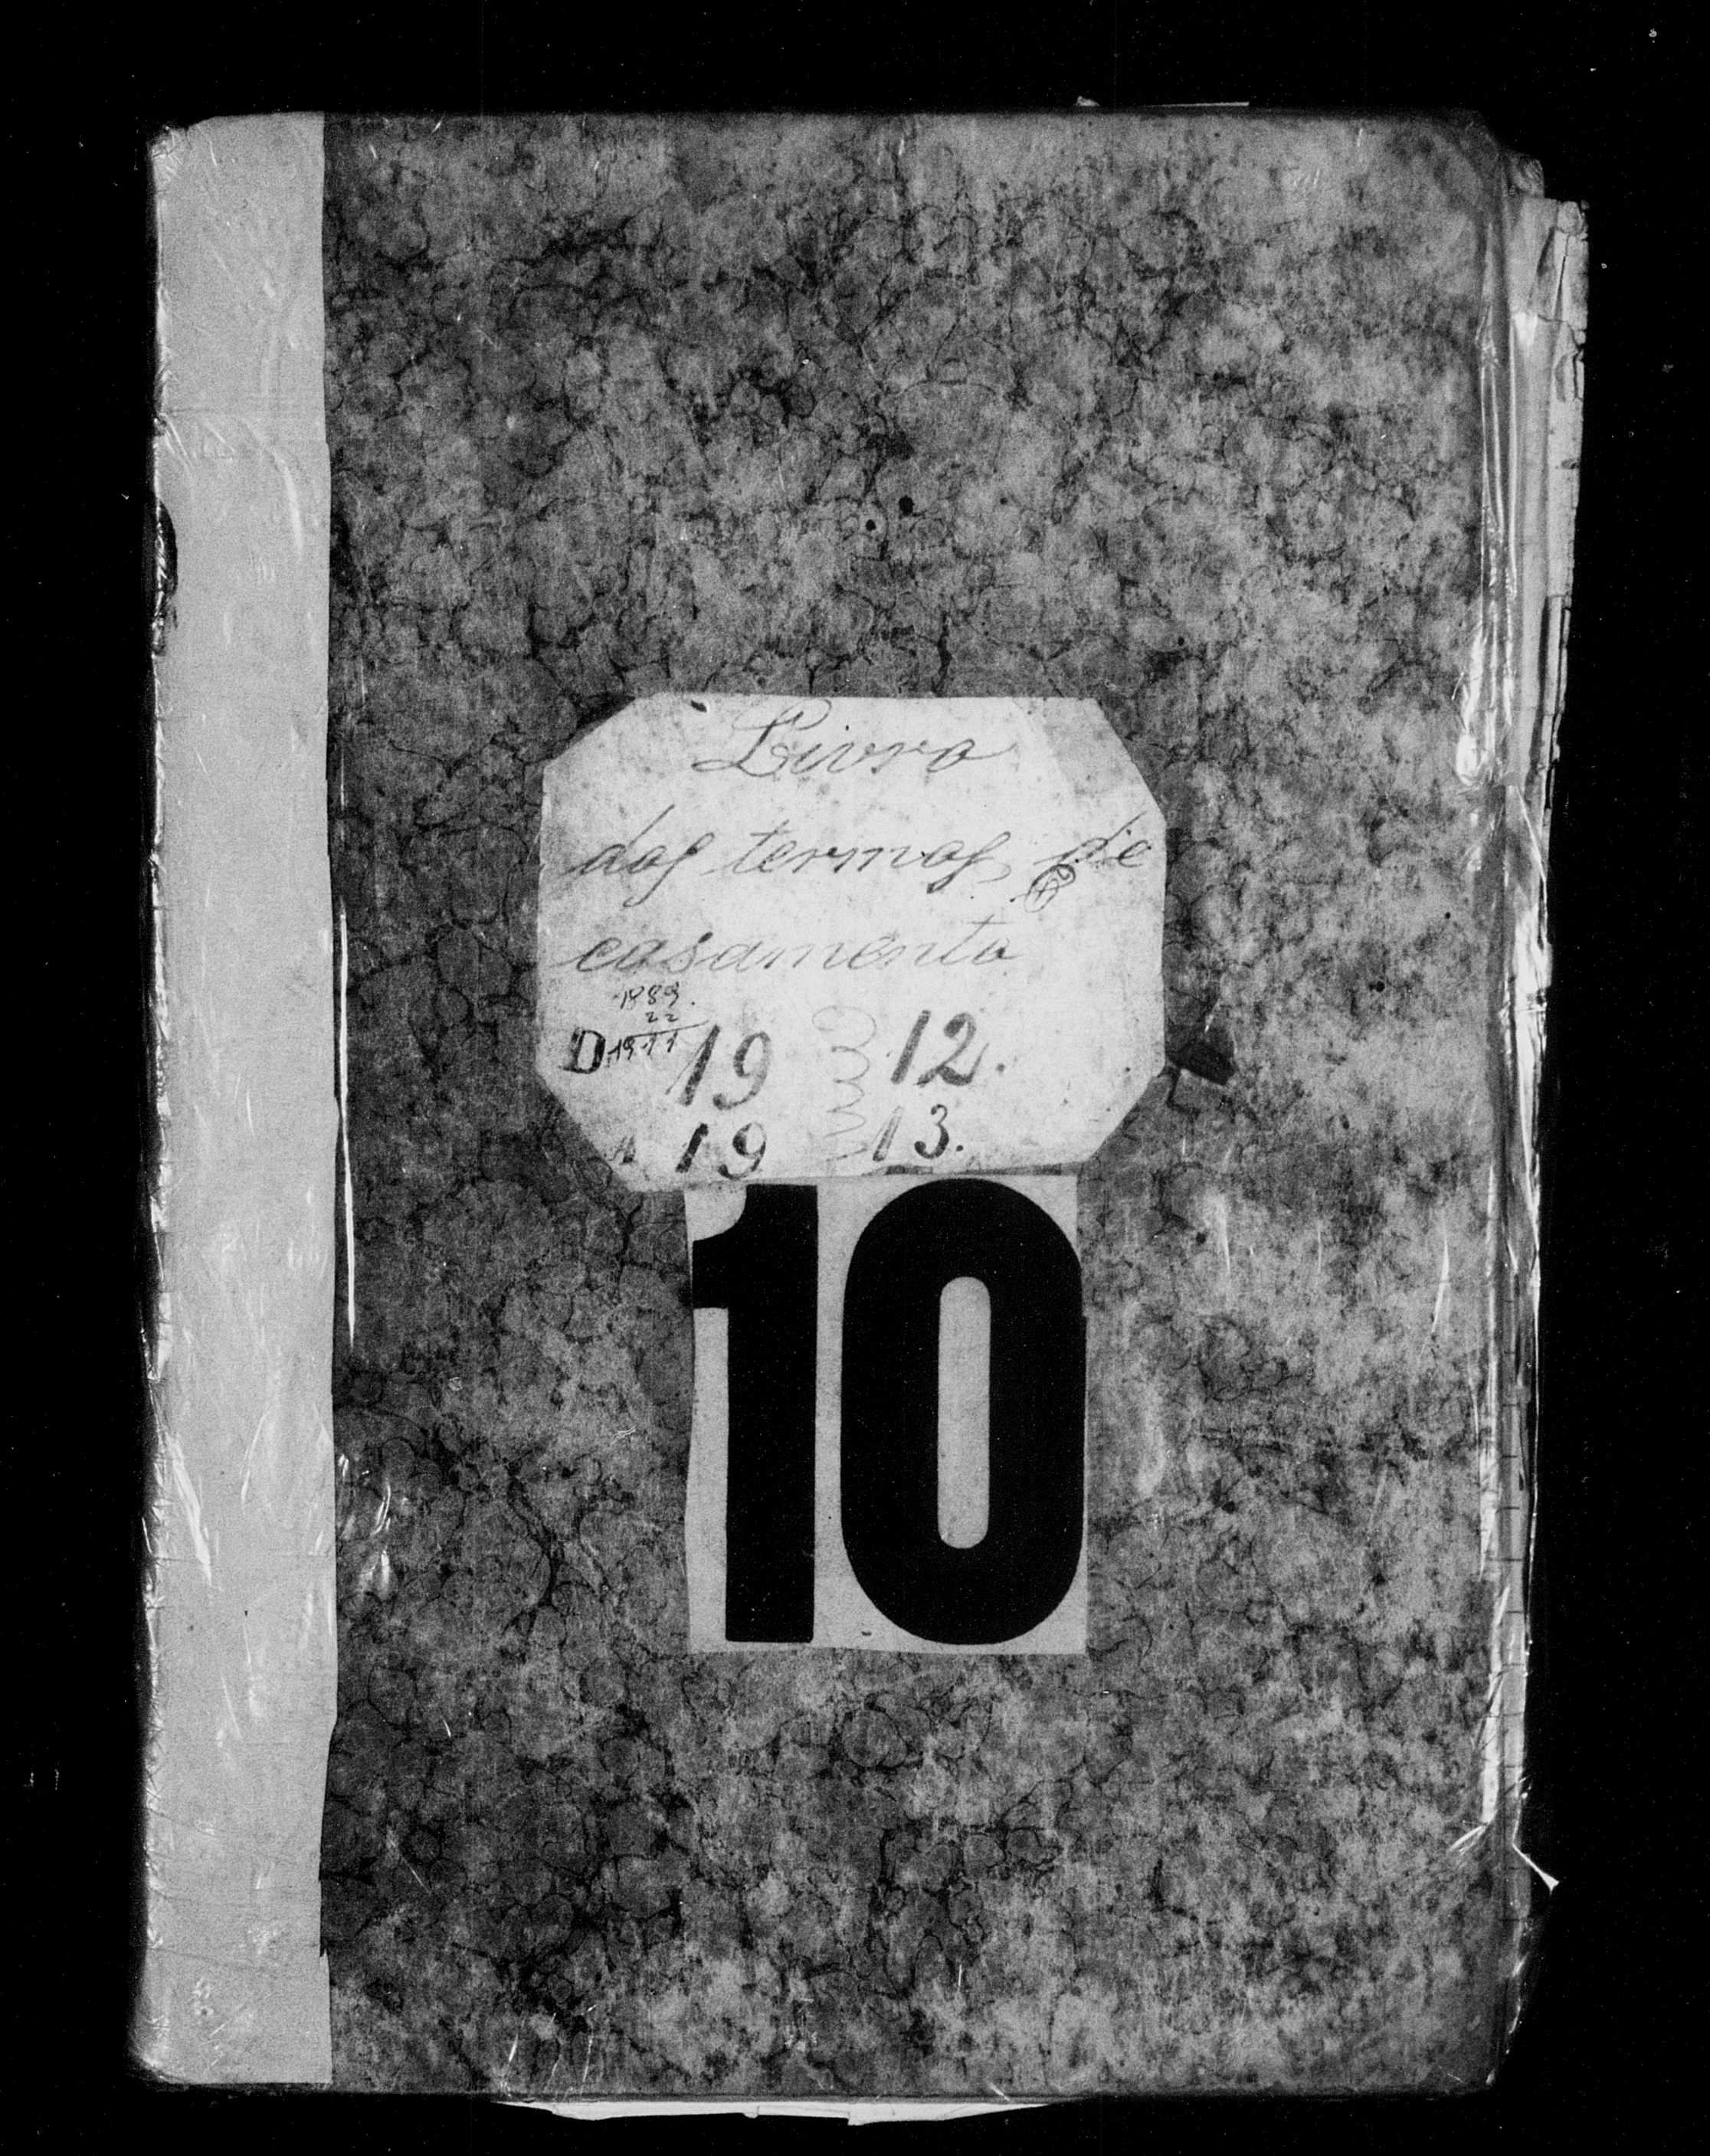 Livro
dos termos de
casamento
1889.
22
1911
D 19 12.
A 19 13.
10